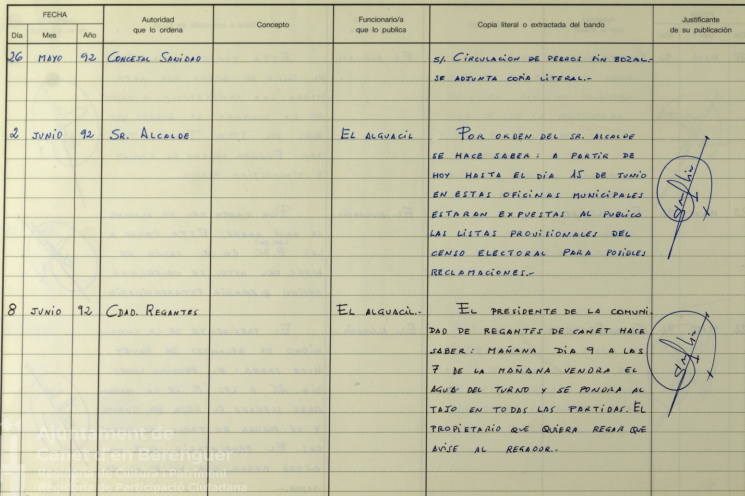 FECHA
Día Mes Año
Autoridad
que lo ordena
Concepto
Funcionario/a
que lo publica
Copia literal o extractada del bando
Justificante
de su publicación
26 MAYO 92 CONCEJAL SANIDAD
S/. CIRCULACION DE PERROS SIN BOZAL.-
SE ADJUNTA COPIA LITERAL.-
2 JUNIO 92 SR. ALCALDE EL ALGUACIL
POR ORDEN DEL SR. ALCALDE
SE HACE SABER: A PARTIR DE
HOY HASTA EL DIA 15 DE JUNIO
EN ESTAS OFICINAS MUNICIPALES
ESTARAN EXPUESTAS AL PUBLICO
LAS LISTAS PROVISIONALES DEL
CENSO ELECTORAL PARA POSIBLES
RECLAMACIONES.-
8 JUNIO 92 CDAD. REGANTES EL ALGUACIL.-
EL PRESIDENTE DE LA COMUNI
DAD DE REGANTES DE CANET HACE
SABER: MAÑANA DIA 9 A LAS
7 DE LA MAÑANA VENDRA EL
AGUA DEL TURNO Y SE PONDRA AL
TAJO EN TODAS LAS PARTIDAS. EL
PROPIETARIO QUE QUIERA REGAR QUE
AVISE AL REGADOR.-
Ajuntament de
Canet d'en Berenguer
Regidoria de Cultura i Patrimoni
Regidoria de Participació Ciutadana